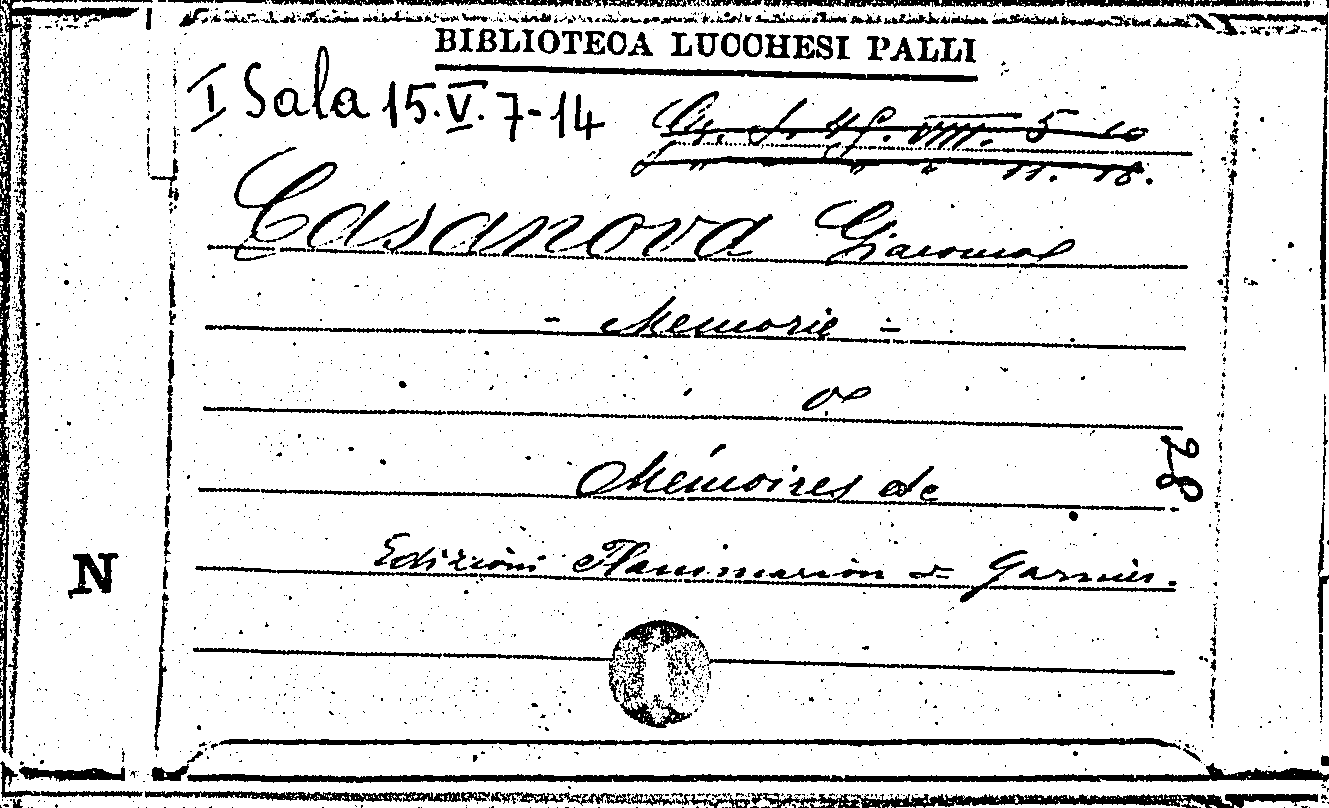 BIBLIOTECA LUCCHESI PALLI
I Sala 15.V. 7-14
Casanova Giacomo
- Memorie -
o
Mémoires de
28
Edizioni Flammarion e Garnier.
N